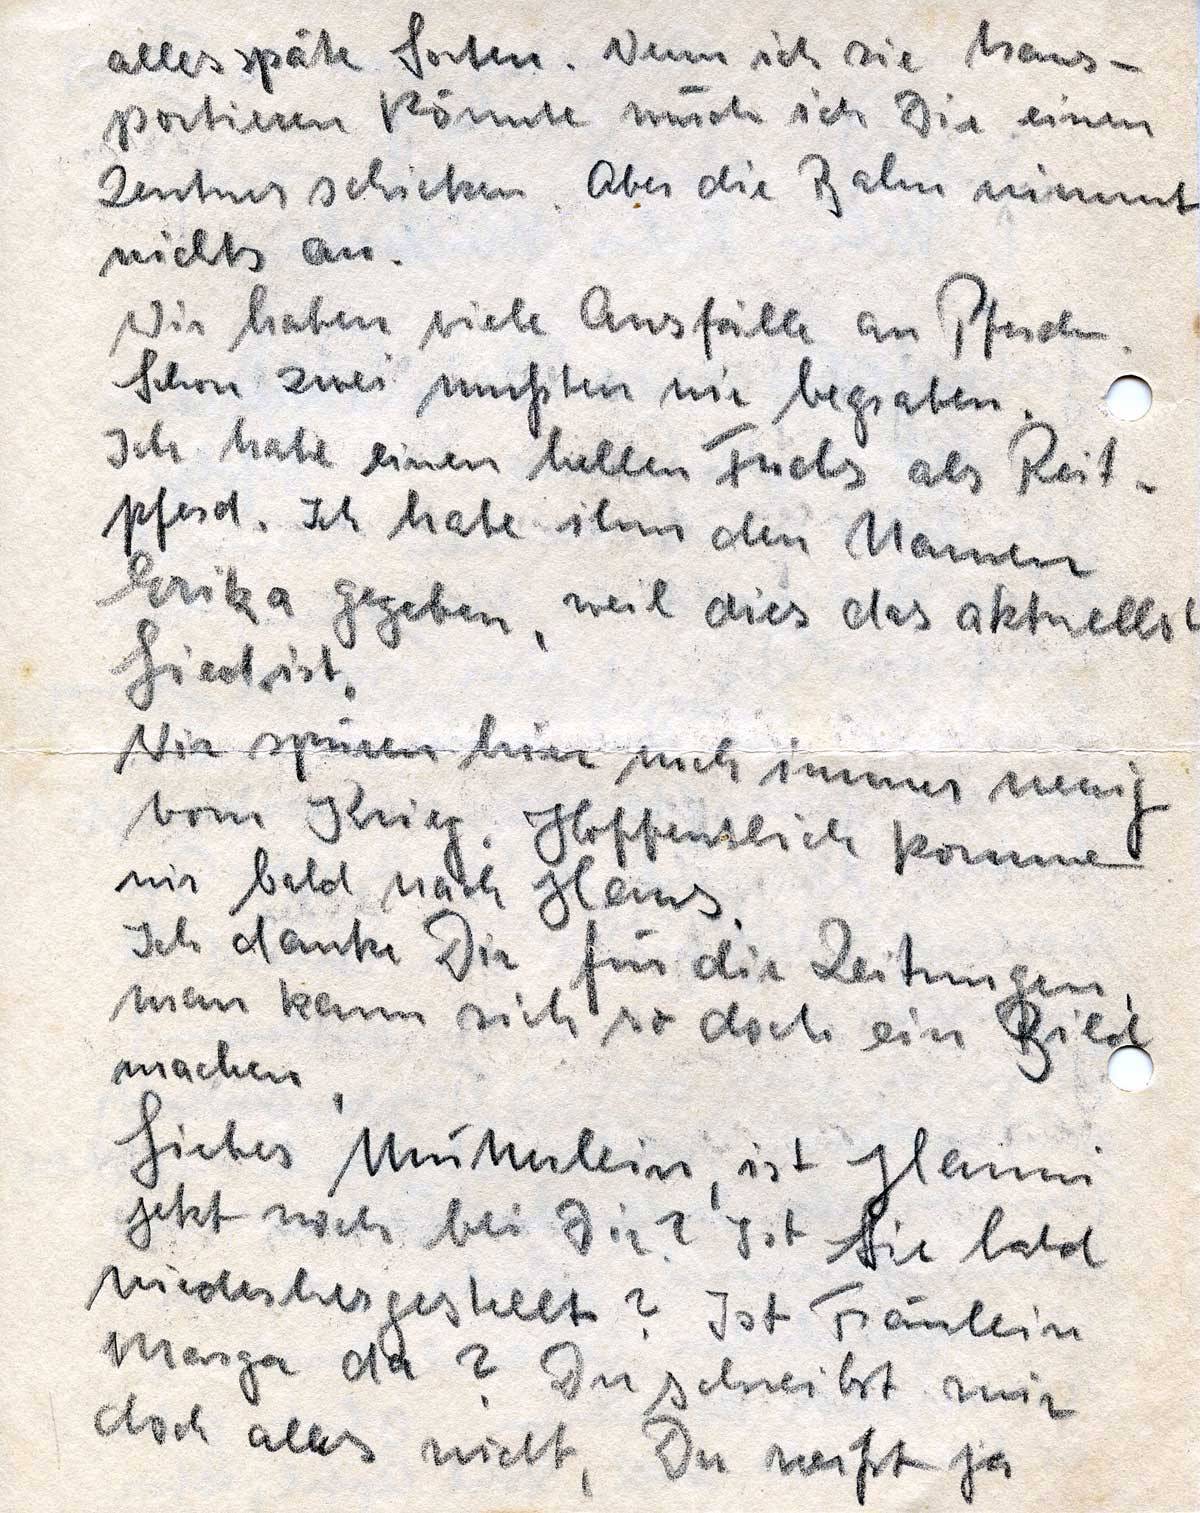 alles späte Sorten. Wenn ich sie trans-
portieren könnte würde ich Dir einen
Zentner schicken. Aber die Bahn nimmt
nichts an.
Wir haben viele Ausfälle an Pferden.
Schon zwei mußten wir begraben.
Ich habe einen hellen Fuchs als Reit-
pferd. Ich habe ihm den Namen
Erika gegeben, weil dies das aktuellste
Lied ist.
Wir spüren hier noch immer wenig
vom Krieg. Hoffentlich kommen
wir bald nach Haus.
Ich danke Dir für die Zeitungen,
man kann sich so doch ein Bild
machen.
Liebes Mütterlein, ist Hanni
jetzt noch bei Dir? Ist Sie bald
wiederhergestellt? Ist Fräulein
Marga da? Du schreibst mir
doch alles nicht, Du weißt ja